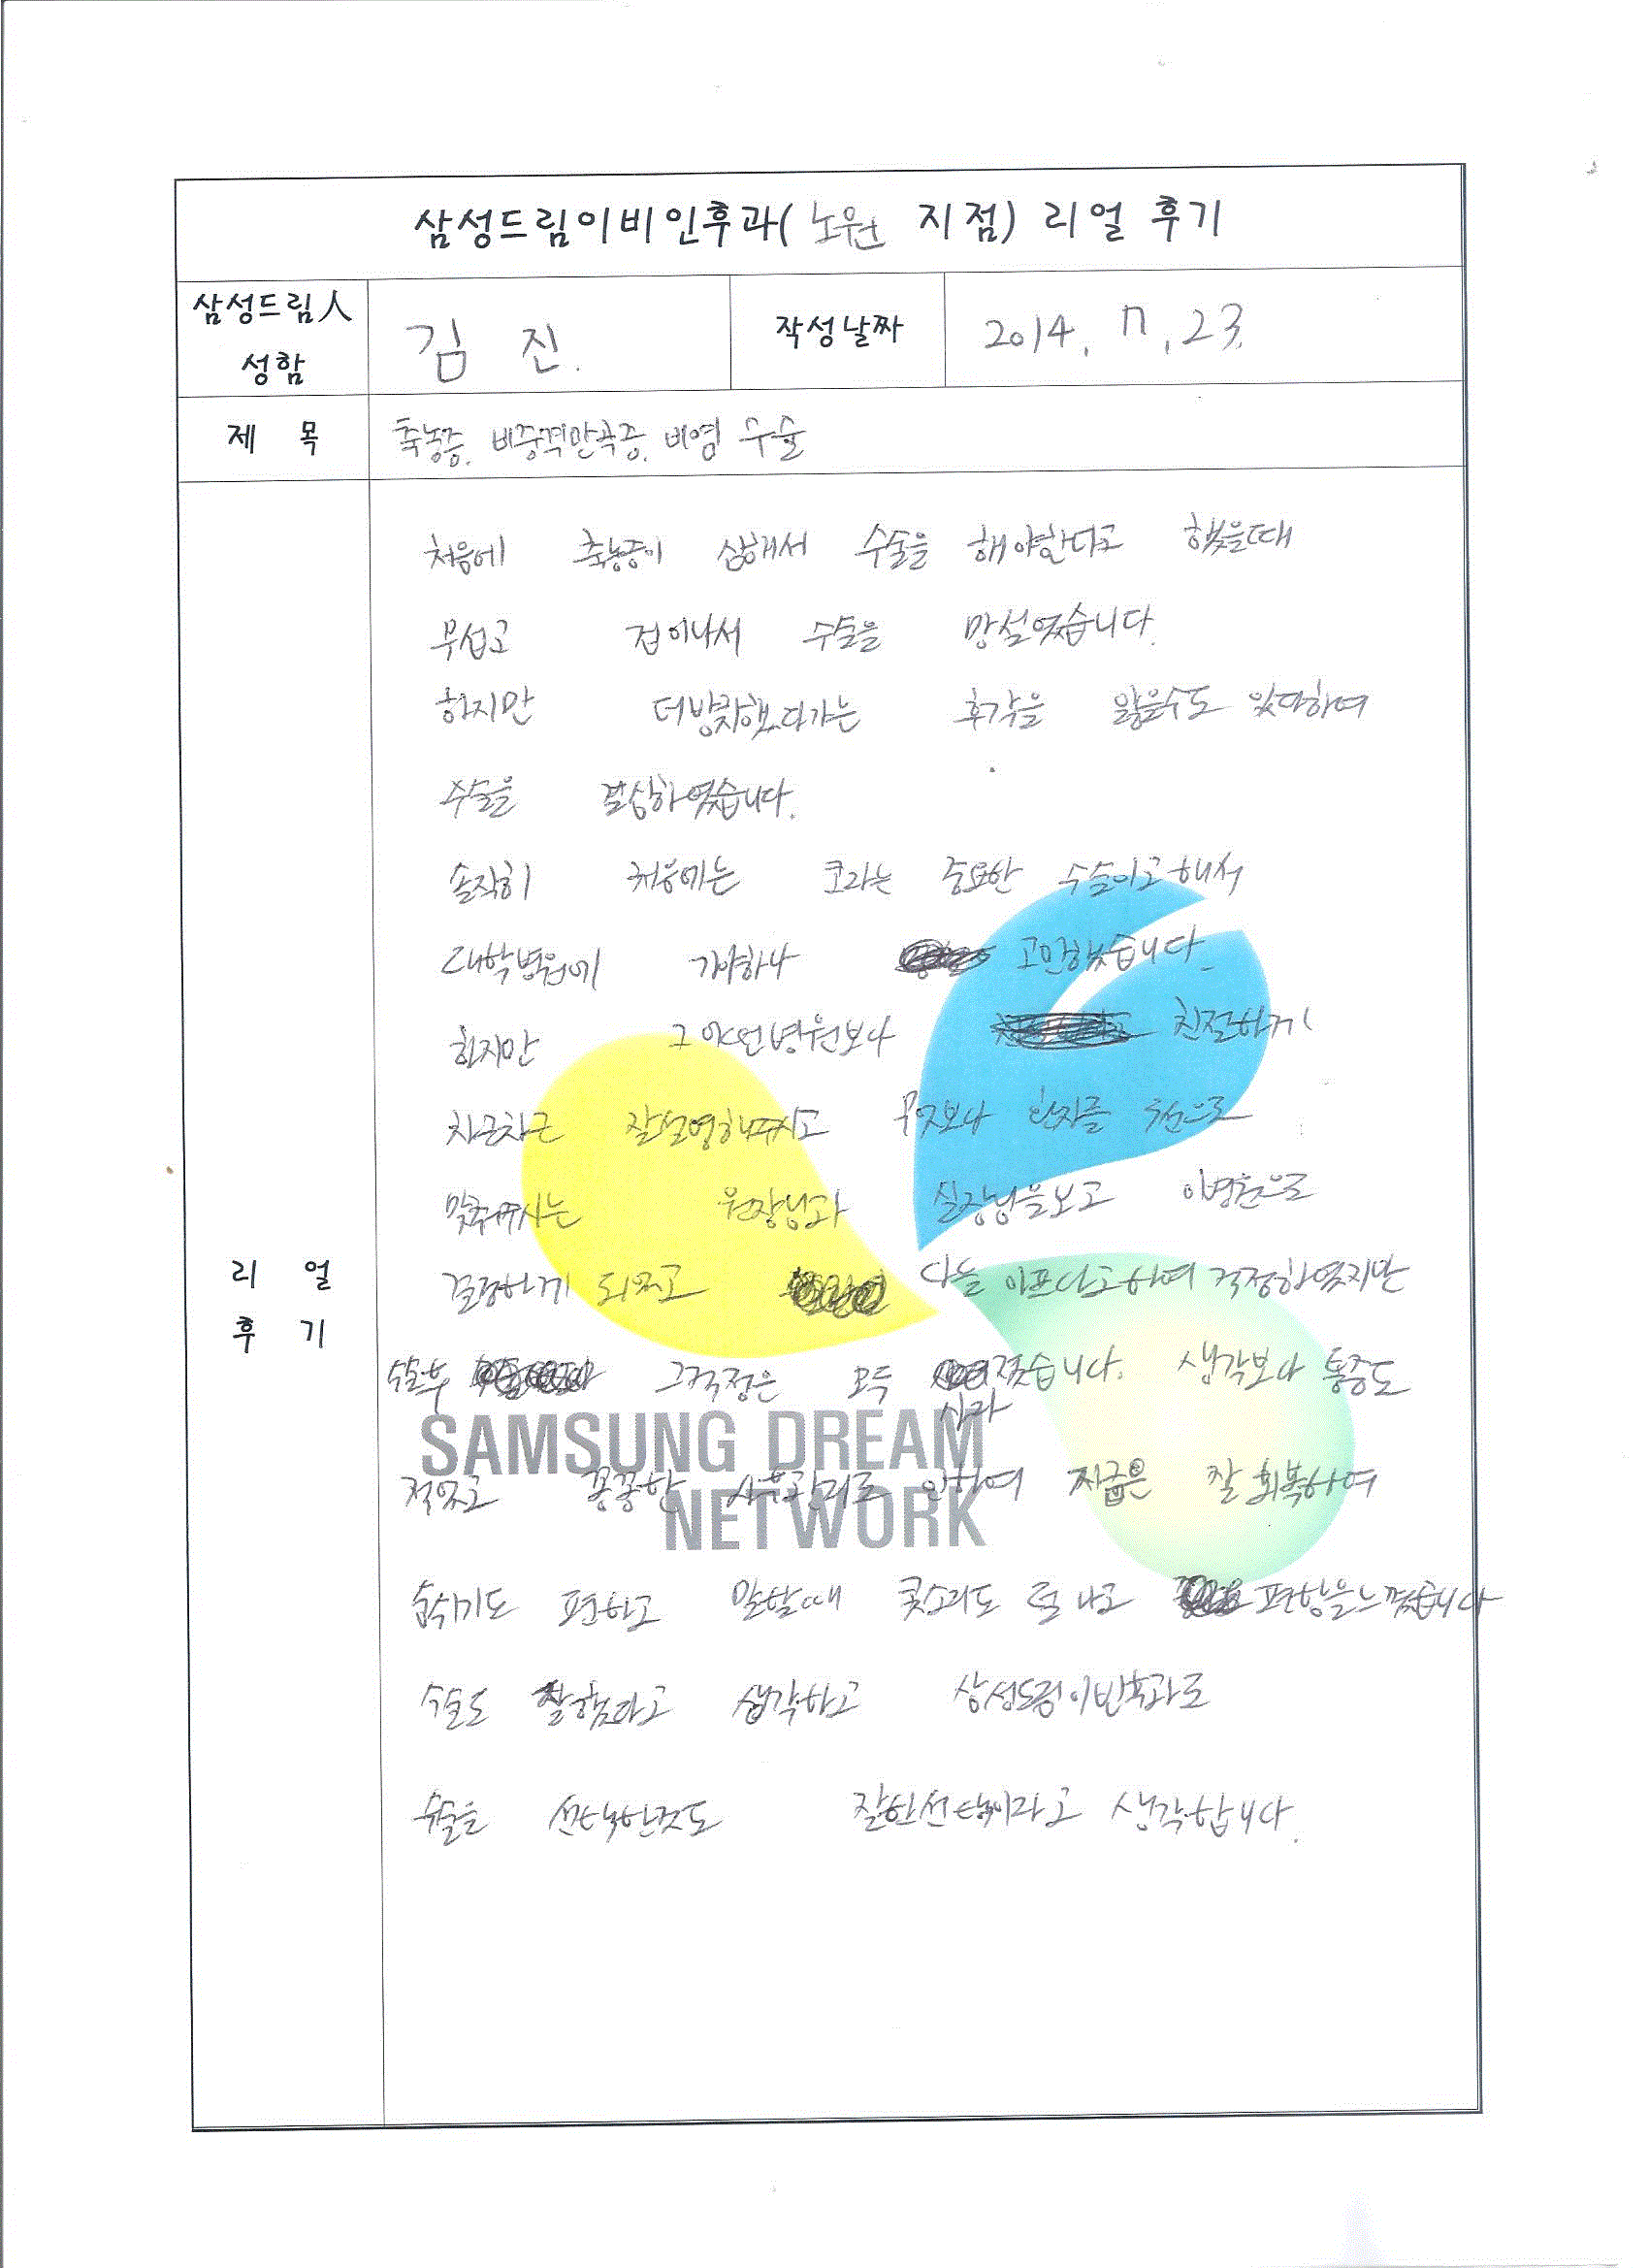 삼성드림이비인후과( 노원 지점) 리얼 후기
삼성드림人 성함
김 진.
작성날짜
2014. 7. 23.
제 목
축농증. 비중격만곡증. 비염 수술
리 얼 후 기
처음에 축농증이 심해서 수술을 해야한다고 했을때
무섭고 겁이나서 수술을 망설였습니다.
하지만 더방치했다가는 후각을 잃을수도 있다하여
수술을 결심하였습니다.
솔직히 처음에는 코라는 중요한 수술이고해서
대학병원에 가야하나 고민했습니다.
하지만 그 어떤병원보다 친절하게
차근차근 잘설명해주시고 무엇보다 환자를 우선으로
맞춰주시는 원장님과 실장님을보고 이병원으로
결정하게 되었고 다들 아프다고하여 걱정하였지만
수술후 그걱정은 모두 사라졌습니다. 생각보다 통증도
적었고 꼼꼼한 사후관리로 인하여 지금은 잘 회복하여
숨쉬기도 편하고 말할때 콧소리도 덜 나고 편함을느꼈습니다
수술도 잘했다고 생각하고 삼성드림이빈후과로
수술을 선택한것도 잘한선택이라고 생각합니다.
SAMSUNG DREAM
NETWORK